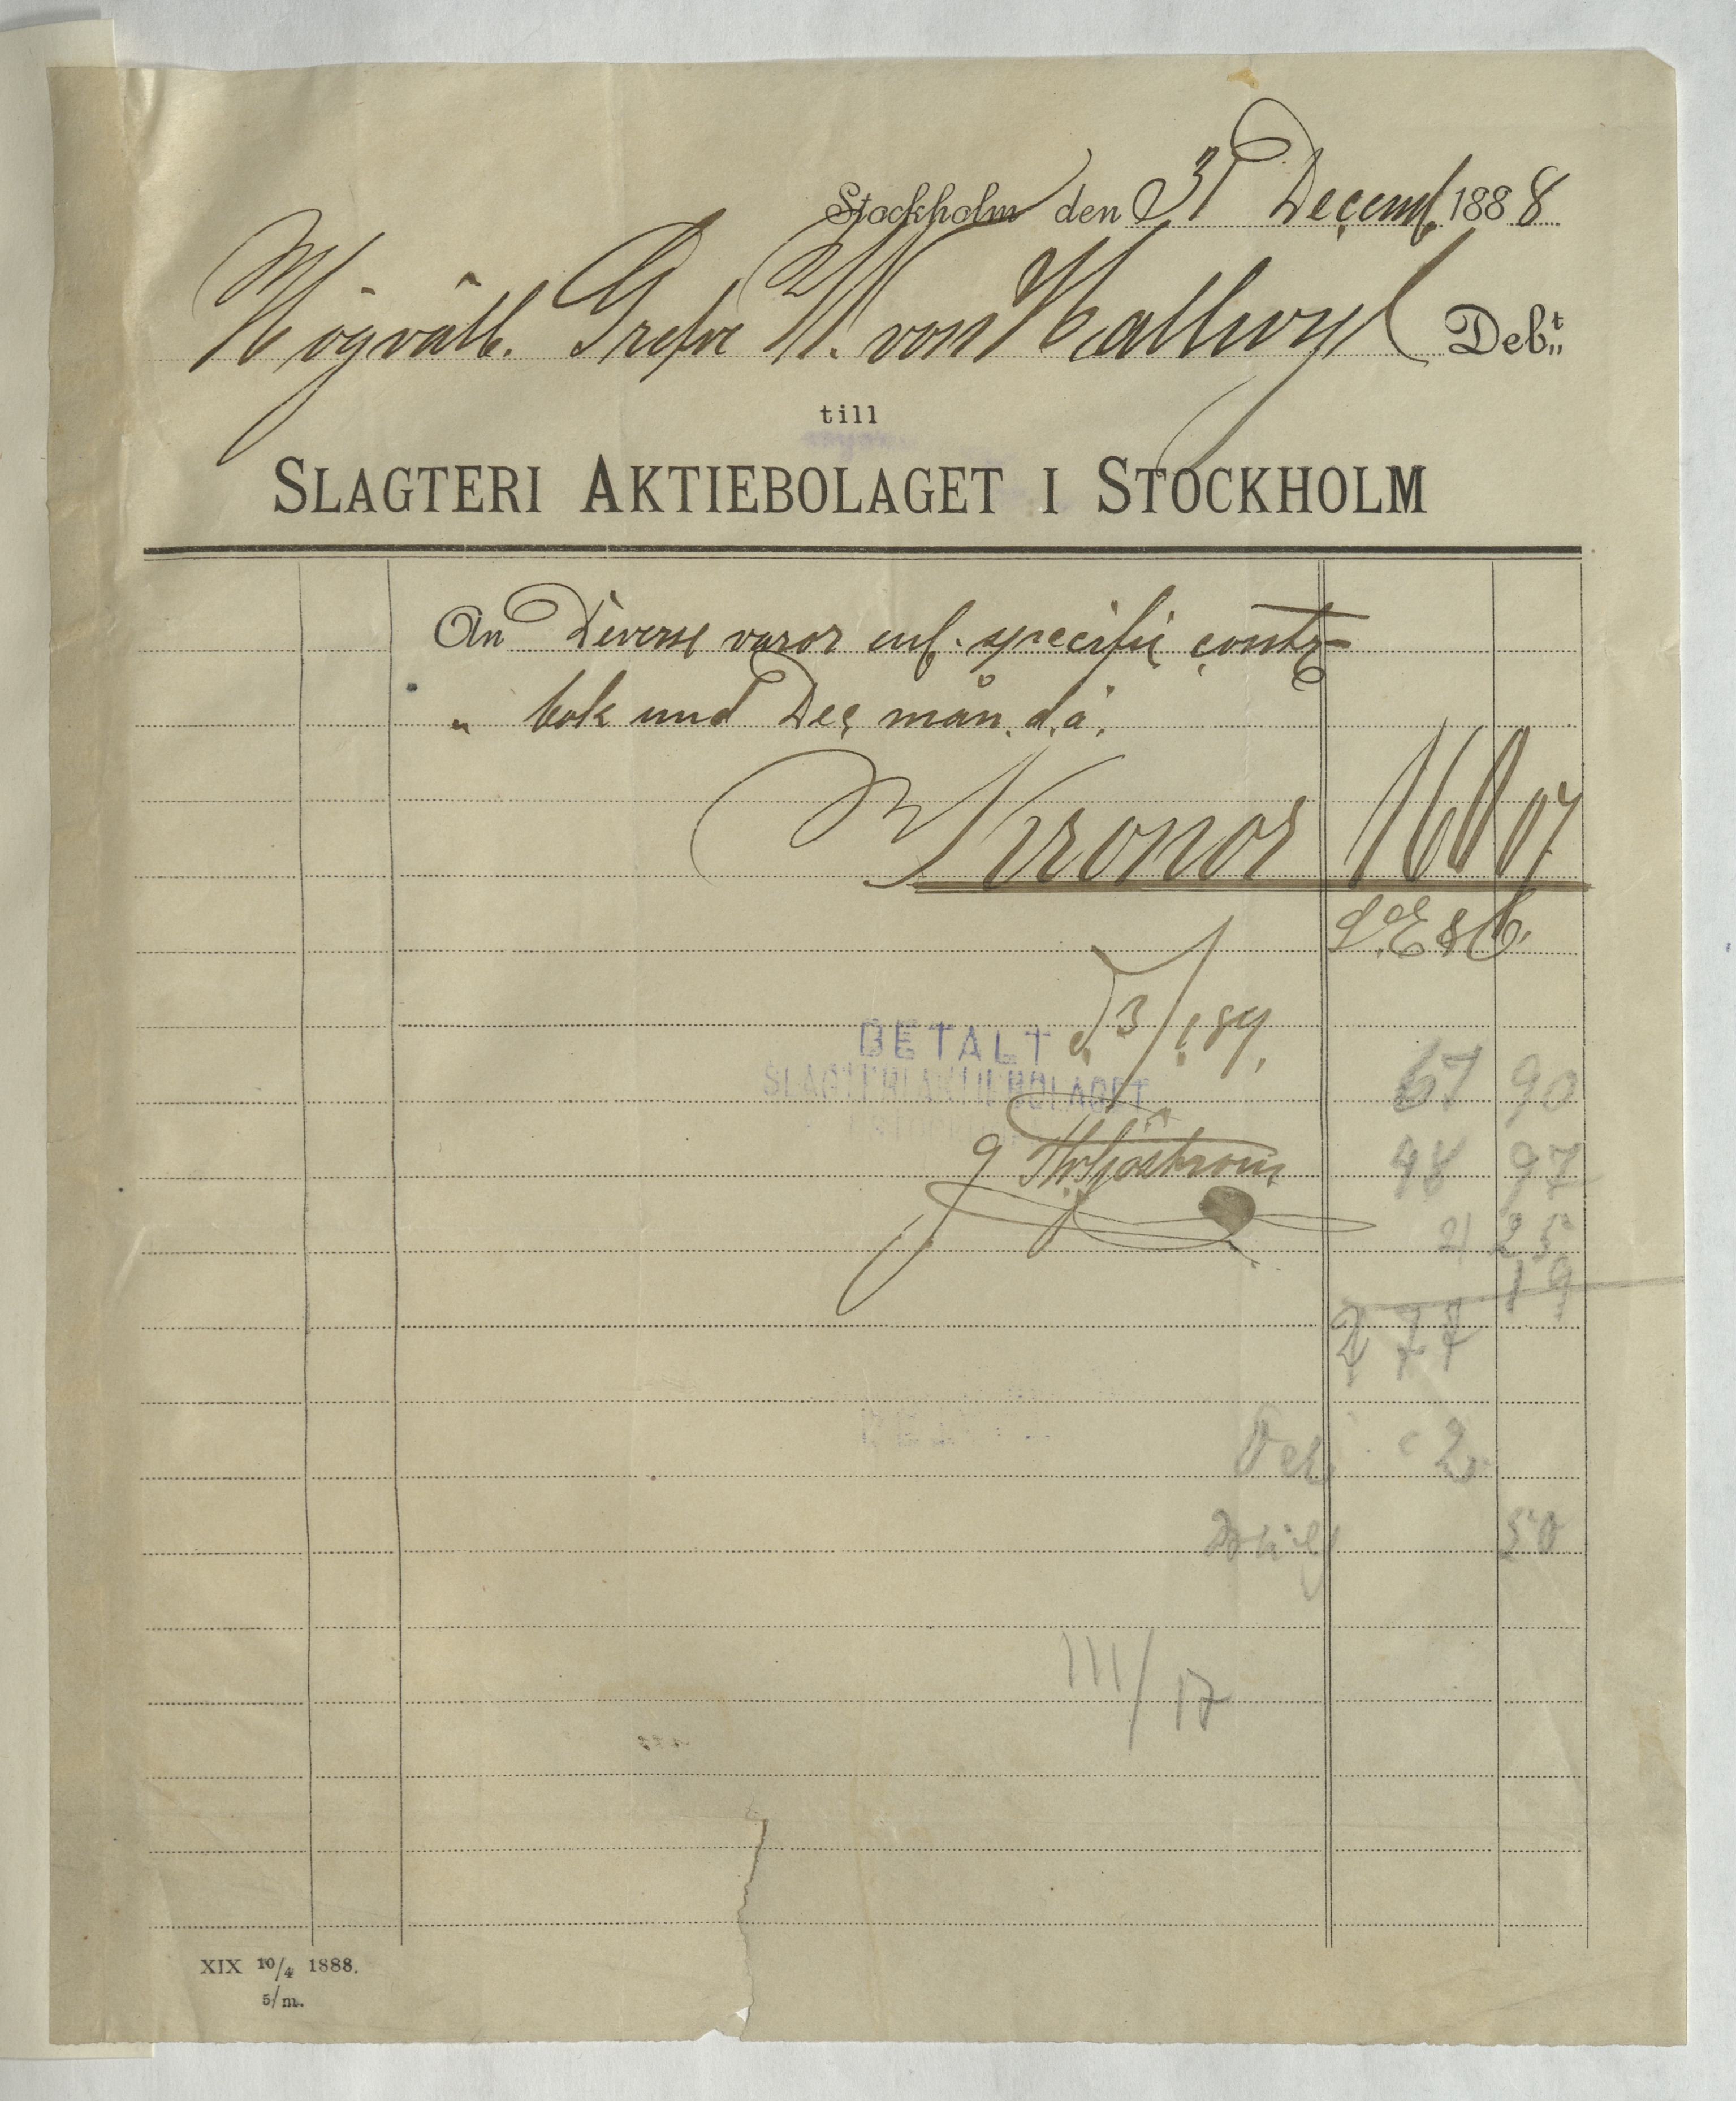 Stockholm den 31 Decemb. 1888
Högvälb. Grefve W. von Hallwyl Deb:t
till
SLAGTERI AKTIEBOLAGET I STOCKHOLM
An Diverse varor enl. specific contr
" bok und Dec mån. d.å.
Kronor 160 07
S.E. & O.
d. 3/1 89.
BETALT
SLAGTERIAKTIEBOLAGET
Th. Sjöström
67 90
48 97
25
19
277
2
50
III/17
XIX 10/4 1888.
5/m.